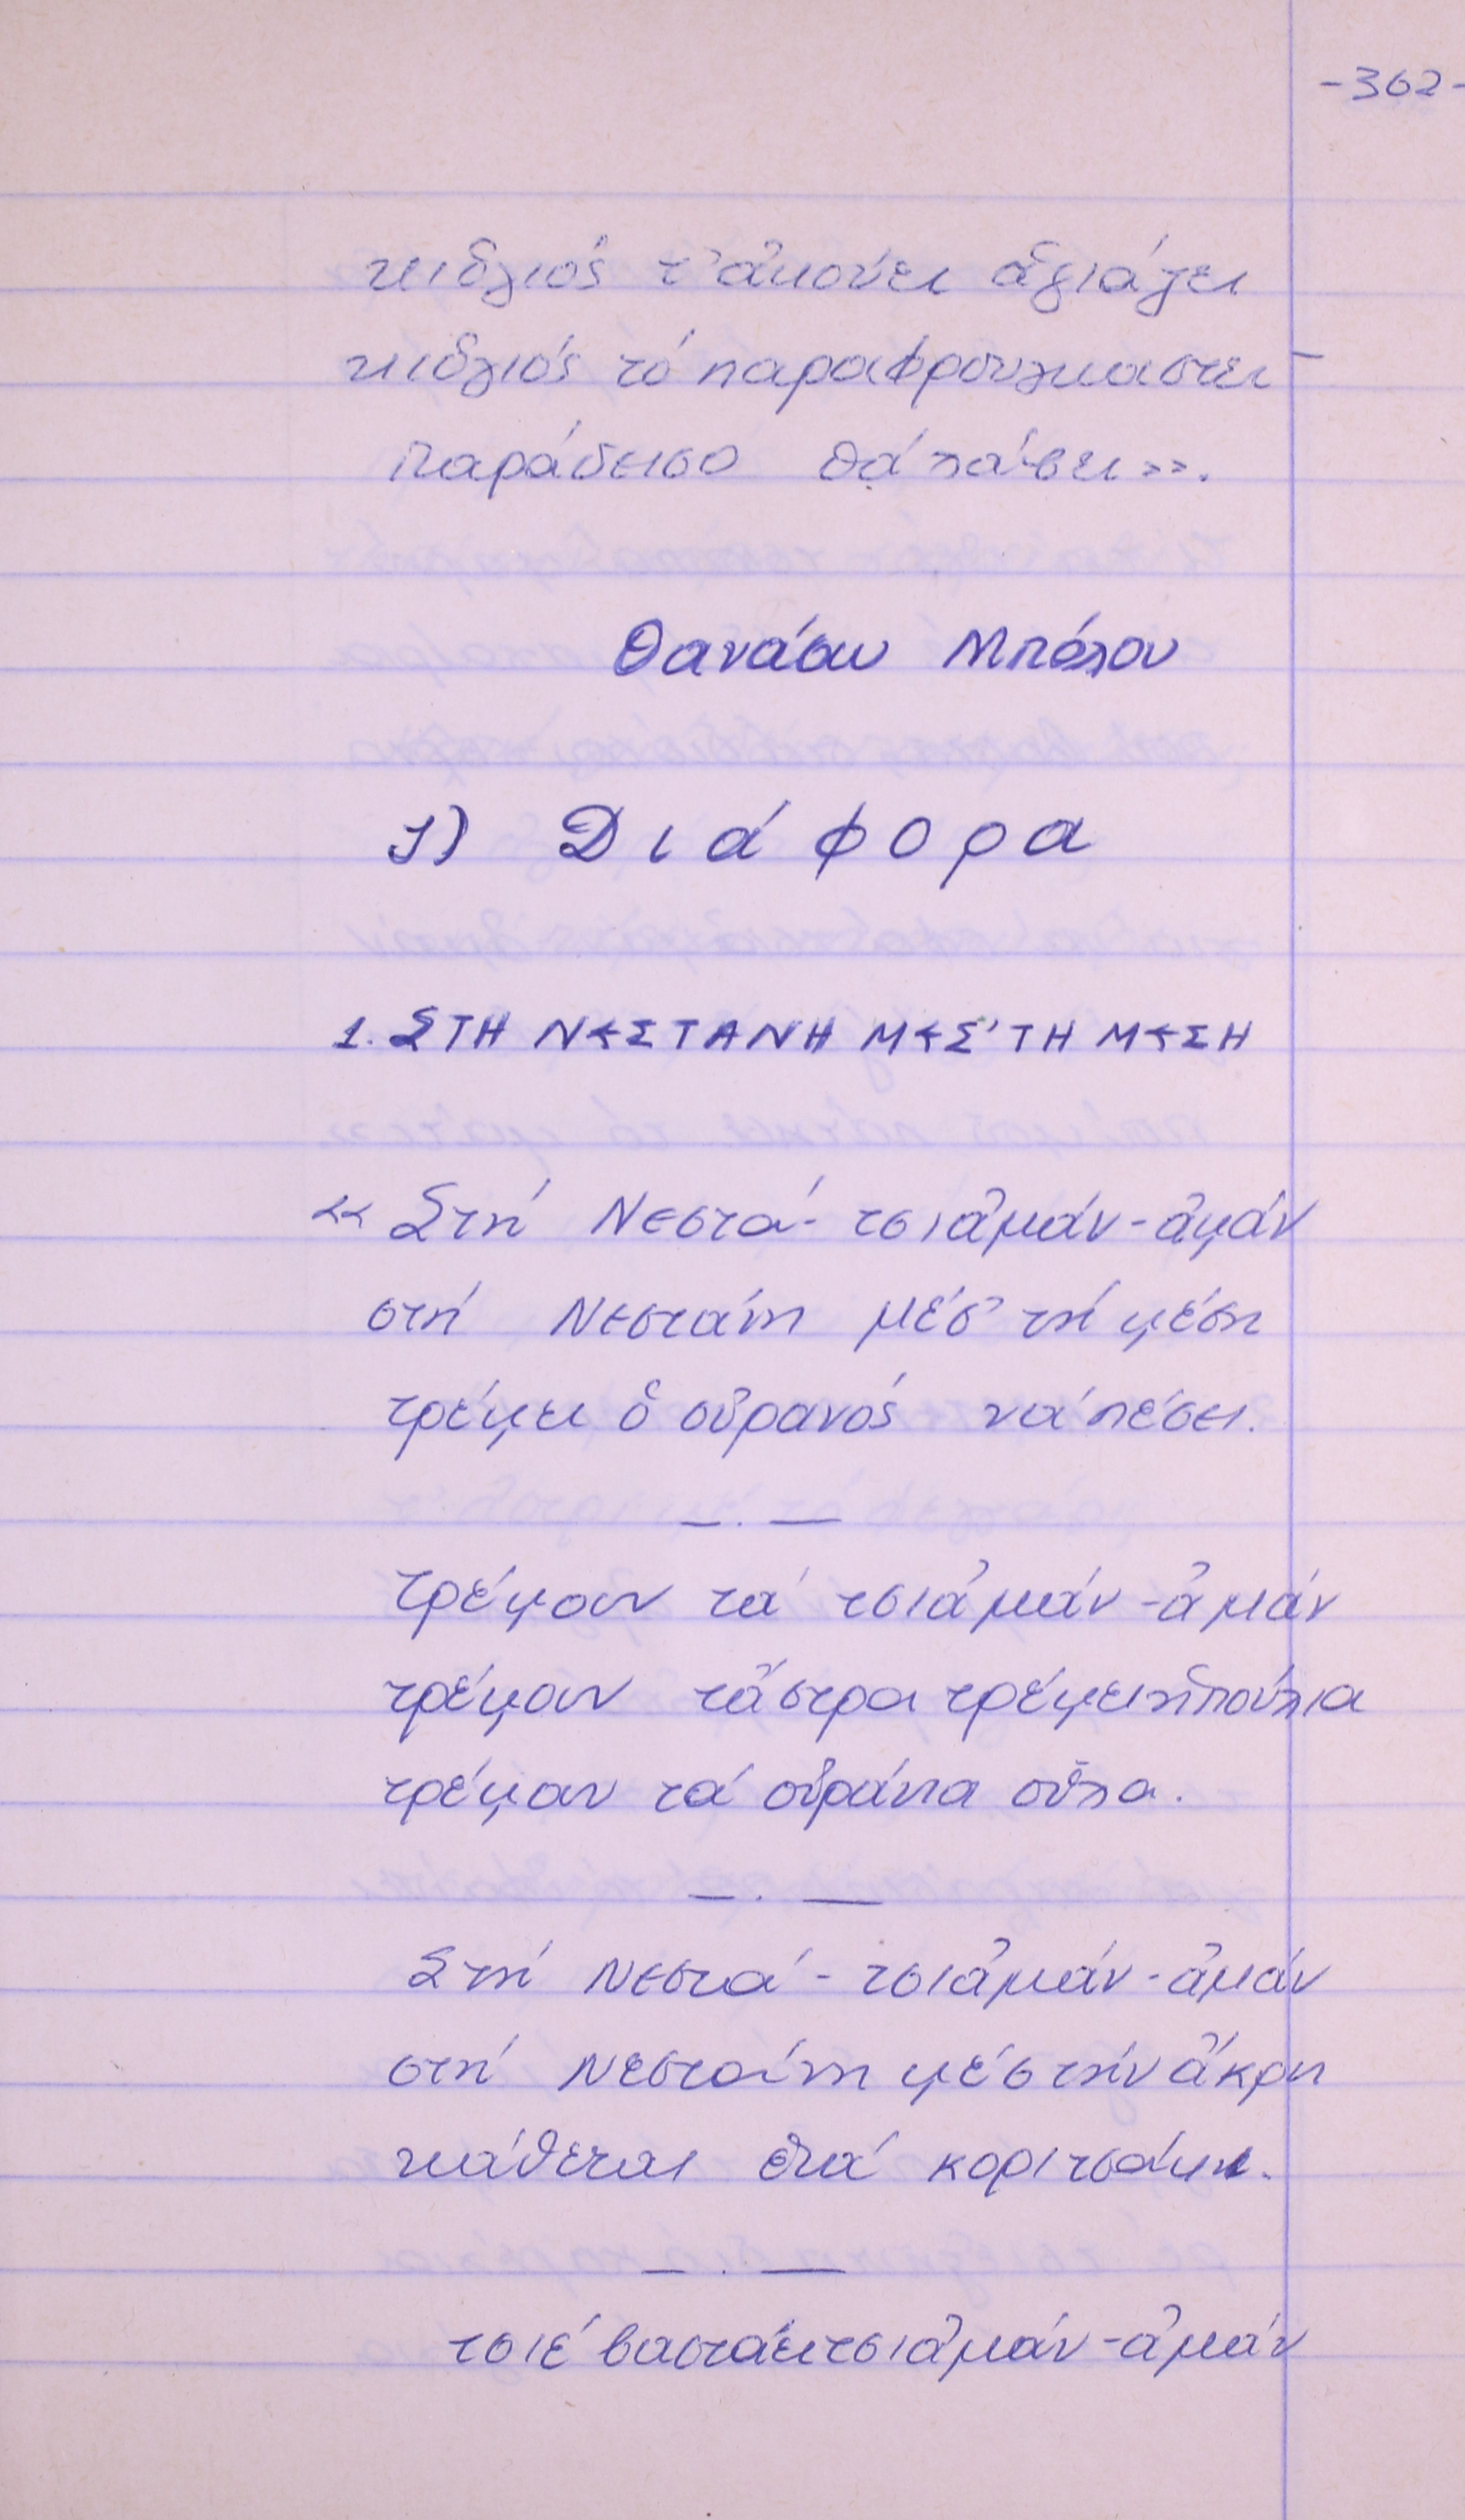 -362-
κιὅγιος τ' ἀκούει ἁγιάζει
κιὅγιός τό παραφρουγκαστει-
παράδεισο θά πάει».
Θανάση Μπόλου
γ) Διάφορα
1. ΣΤΗ ΝΕΣΤΑΝΗ ΜΕΣ' ΤΗ ΜΕΣΗ
«Στή Νεστά- τσιἀμάν-ἀμάν
στή Νεστάνη μέσ' τή μέση
τρέμει ὁ οὐρανός νά πέσει.
— . —
τρέμουν τά τσιἀμάν-ἀμάν
τρέμουν τἄστρα τρέμει ἡ πούλια
τρέμουν τά οὐράνια οὖλα.
— . —
Στή Νεστά- τσιἀμάν-ἀμάν
στή Νεστάνη μέσ τήν ἄκρη
κάθεται ἑνα κοριτσάκι.
— . —
τσιέ βαστάει τσιἀμάν-ἀμάν